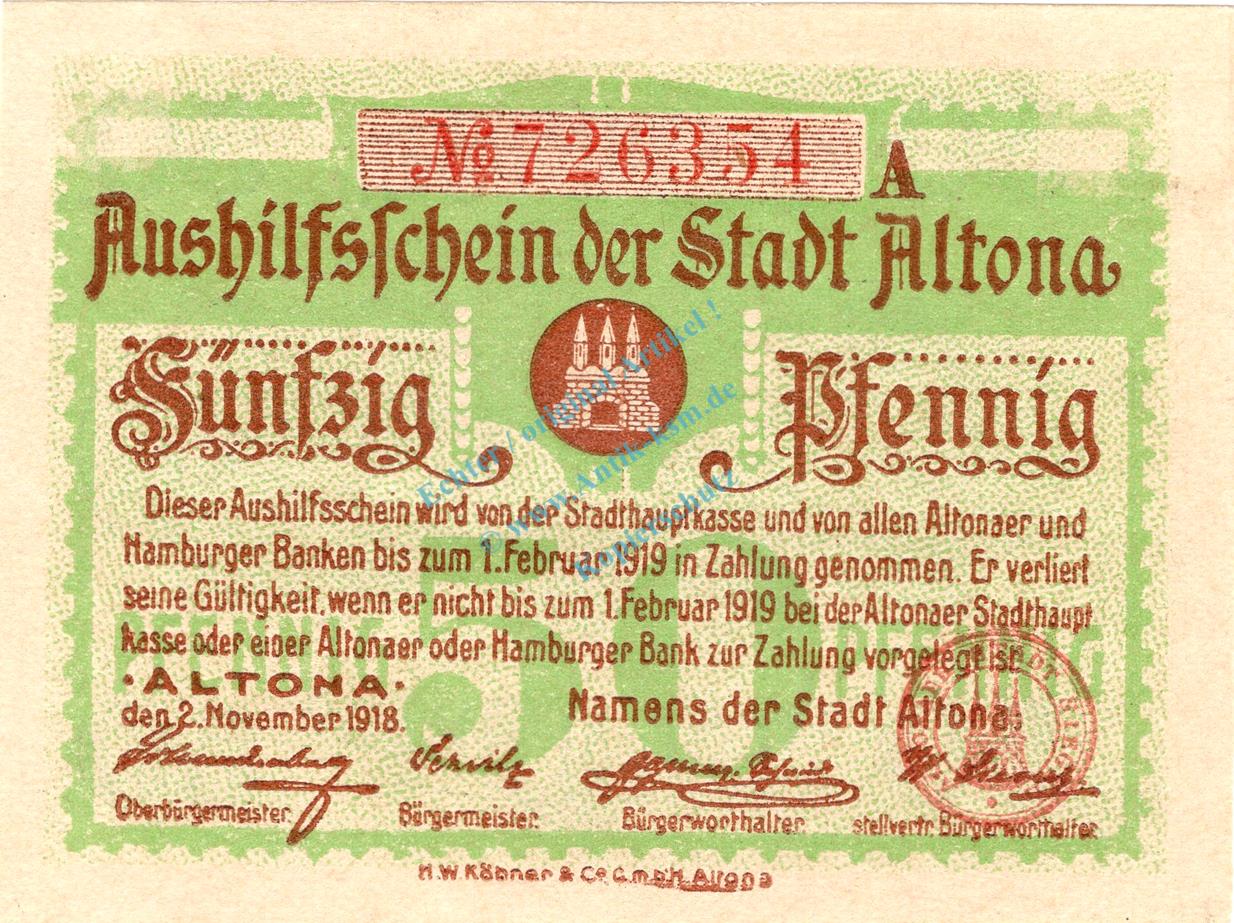 No 726354
A
Aushilfsschein der Stadt Altona
Fünfzig Pfennig
Dieser Aushilfsschein wird von der Stadthauptkasse und von allen Altonaer und
Hamburger Banken bis zum 1. Februar 1919 in Zahlung genommen. Er verliert
seine Gültigkeit, wenn er nicht bis zum 1. Februar 1919 bei der Altonaer Stadthaupt
kasse oder einer Altonaer oder Hamburger Bank zur Zahlung vorgelegt ist.
PFENNIG 50 PFENNIG
·ALTONA·
den 2. November 1918.
Namens der Stadt Altona:
Oberbürgermeister. Bürgermeister. Bürgerworthalter. stellvertr. Bürgerworthalter.
H.W. Köbner & Co G.m.b.H. Altona
Echter / original Artikel !
© www.Antik-ksm.de
Kopierschutz